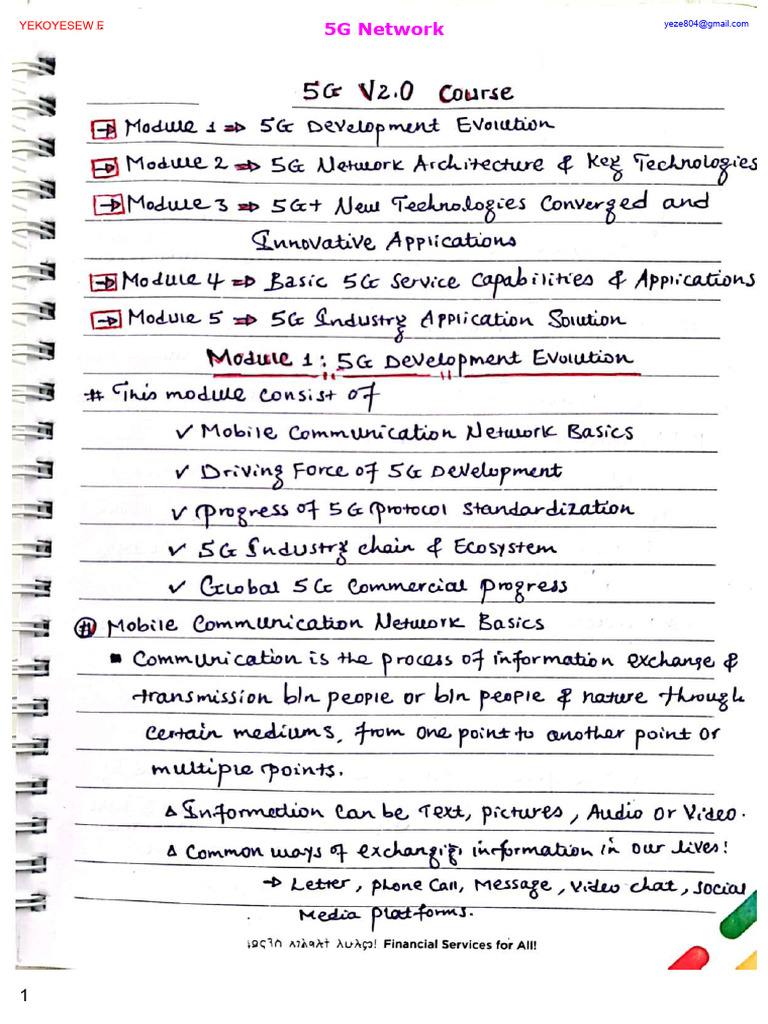 YEKOYESEW E
5G Network
yeze804@gmail.com
5G V2.0 Course
→ Module 1 ⇒ 5G Development Evolution
→ Module 2 ⇒ 5G Network Architecture & Key Technologies
→ Module 3 ⇒ 5G+ New Technologies Converged and
Innovative Applications
→ Module 4 ⇒ Basic 5G Service Capabilities & Applications
→ Module 5 ⇒ 5G Industry Application Solution
Module 1: 5G Development Evolution
# This module consist of
✓ Mobile Communication Network Basics
✓ Driving Force of 5G Development
✓ Progress of 5G Protocol Standardization
✓ 5G Industry chain & Ecosystem
✓ Global 5G Commercial Progress
# Mobile Communication Network Basics
▪ Communication is the process of information exchange &
transmission b/n people or b/n people & nature through
certain mediums, from one point to another point or
multiple points.
Δ Information can be Text, pictures, Audio or Video.
Δ Common ways of exchang'g information in our lives:
→ Letter, phone call, Message, Video chat, social
Media platforms.
Financial Services for All!
1